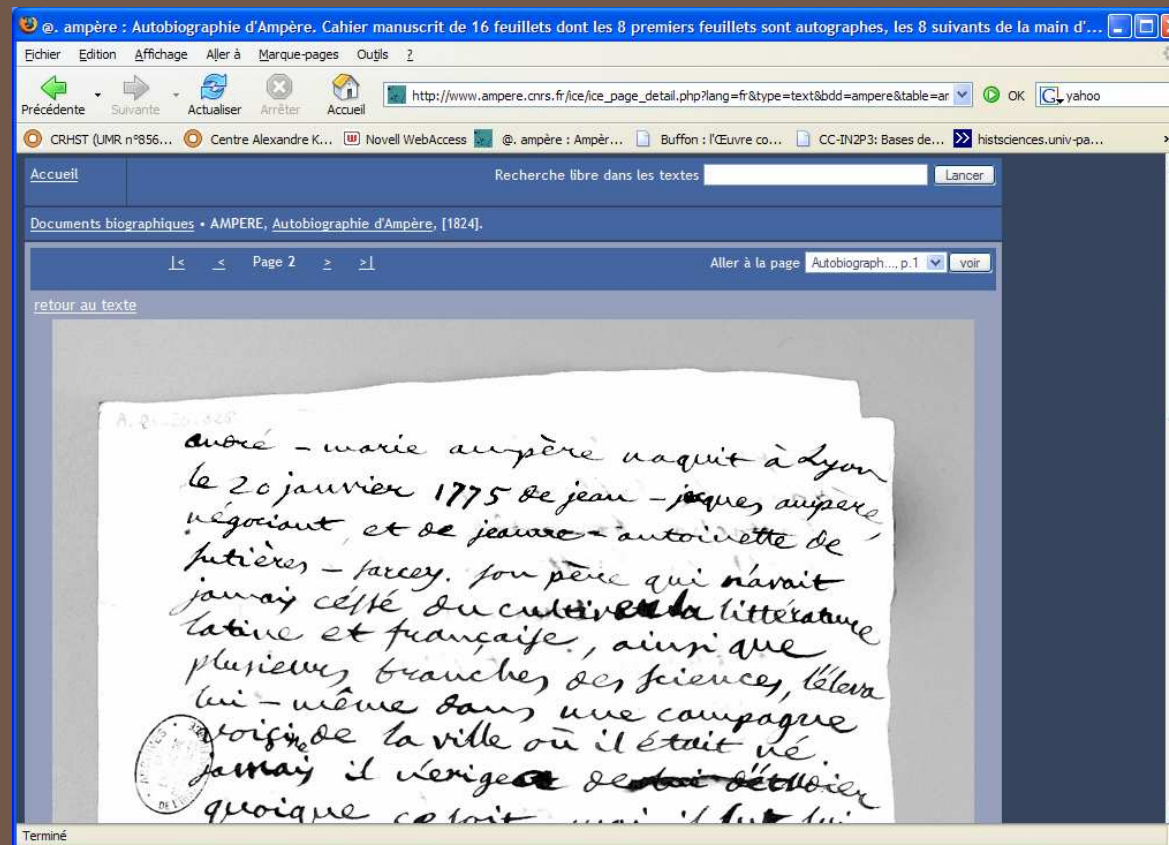 @. ampère : Autobiographie d'Ampère. Cahier manuscrit de 16 feuillets dont les 8 premiers feuillets sont autographes, les 8 suivants de la main d'...
Fichier Edition Affichage Aller à Marque-pages Outils ?
Précédente Suivante Actualiser Arrêter Accueil http://www.ampere.cnrs.fr/ice/ice_page_detail.php?lang=fr&type=text&bdd=ampere&table=ar OK G yahoo
CRHST (UMR n°856... Centre Alexandre K... Novell WebAccess @. ampère : Ampèr... Buffon : l'Œuvre co... CC-IN2P3: Bases de... histsciences.univ-pa...
Accueil Recherche libre dans les textes Lancer
Documents biographiques • AMPERE, Autobiographie d'Ampère, [1824].
|< < Page 2 > >| Aller à la page Autobiograph..., p.1 voir
retour au texte
andré - marie ampère naquit à Lyon
le 20 janvier 1775 de jean - jaques ampère,
négociant, et de jeanne - antoinette de
sutières - sarcey. son père qui n'avait
jamais céssé de cultiver la littérature
latine et française, ainsi que
plusieurs branches des sciences, l'éleva
lui - même dans une campagne
voisine de la ville où il était né.
jamais il n'exigea de
quoique ce soit
Terminé